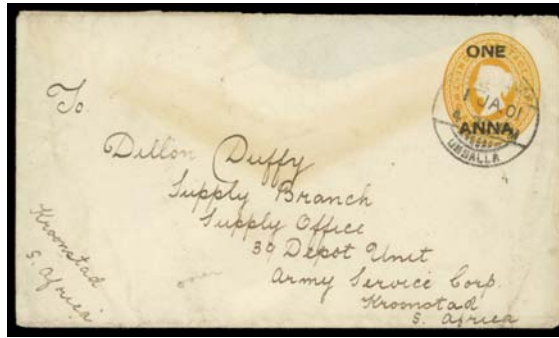 ONE
1 JA 01
ANNA
UMBALLA
To
Dillon Duffy
Supply Branch
Supply Office
39 Depot Unit
Army Service Corp.
Kroonstad
S. Africa
Kroonstad
S. Africa